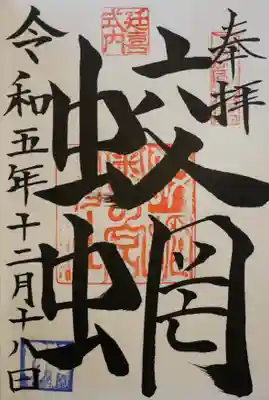 奉拝
延喜式内
蛟蝄
令和五年十二月十八日